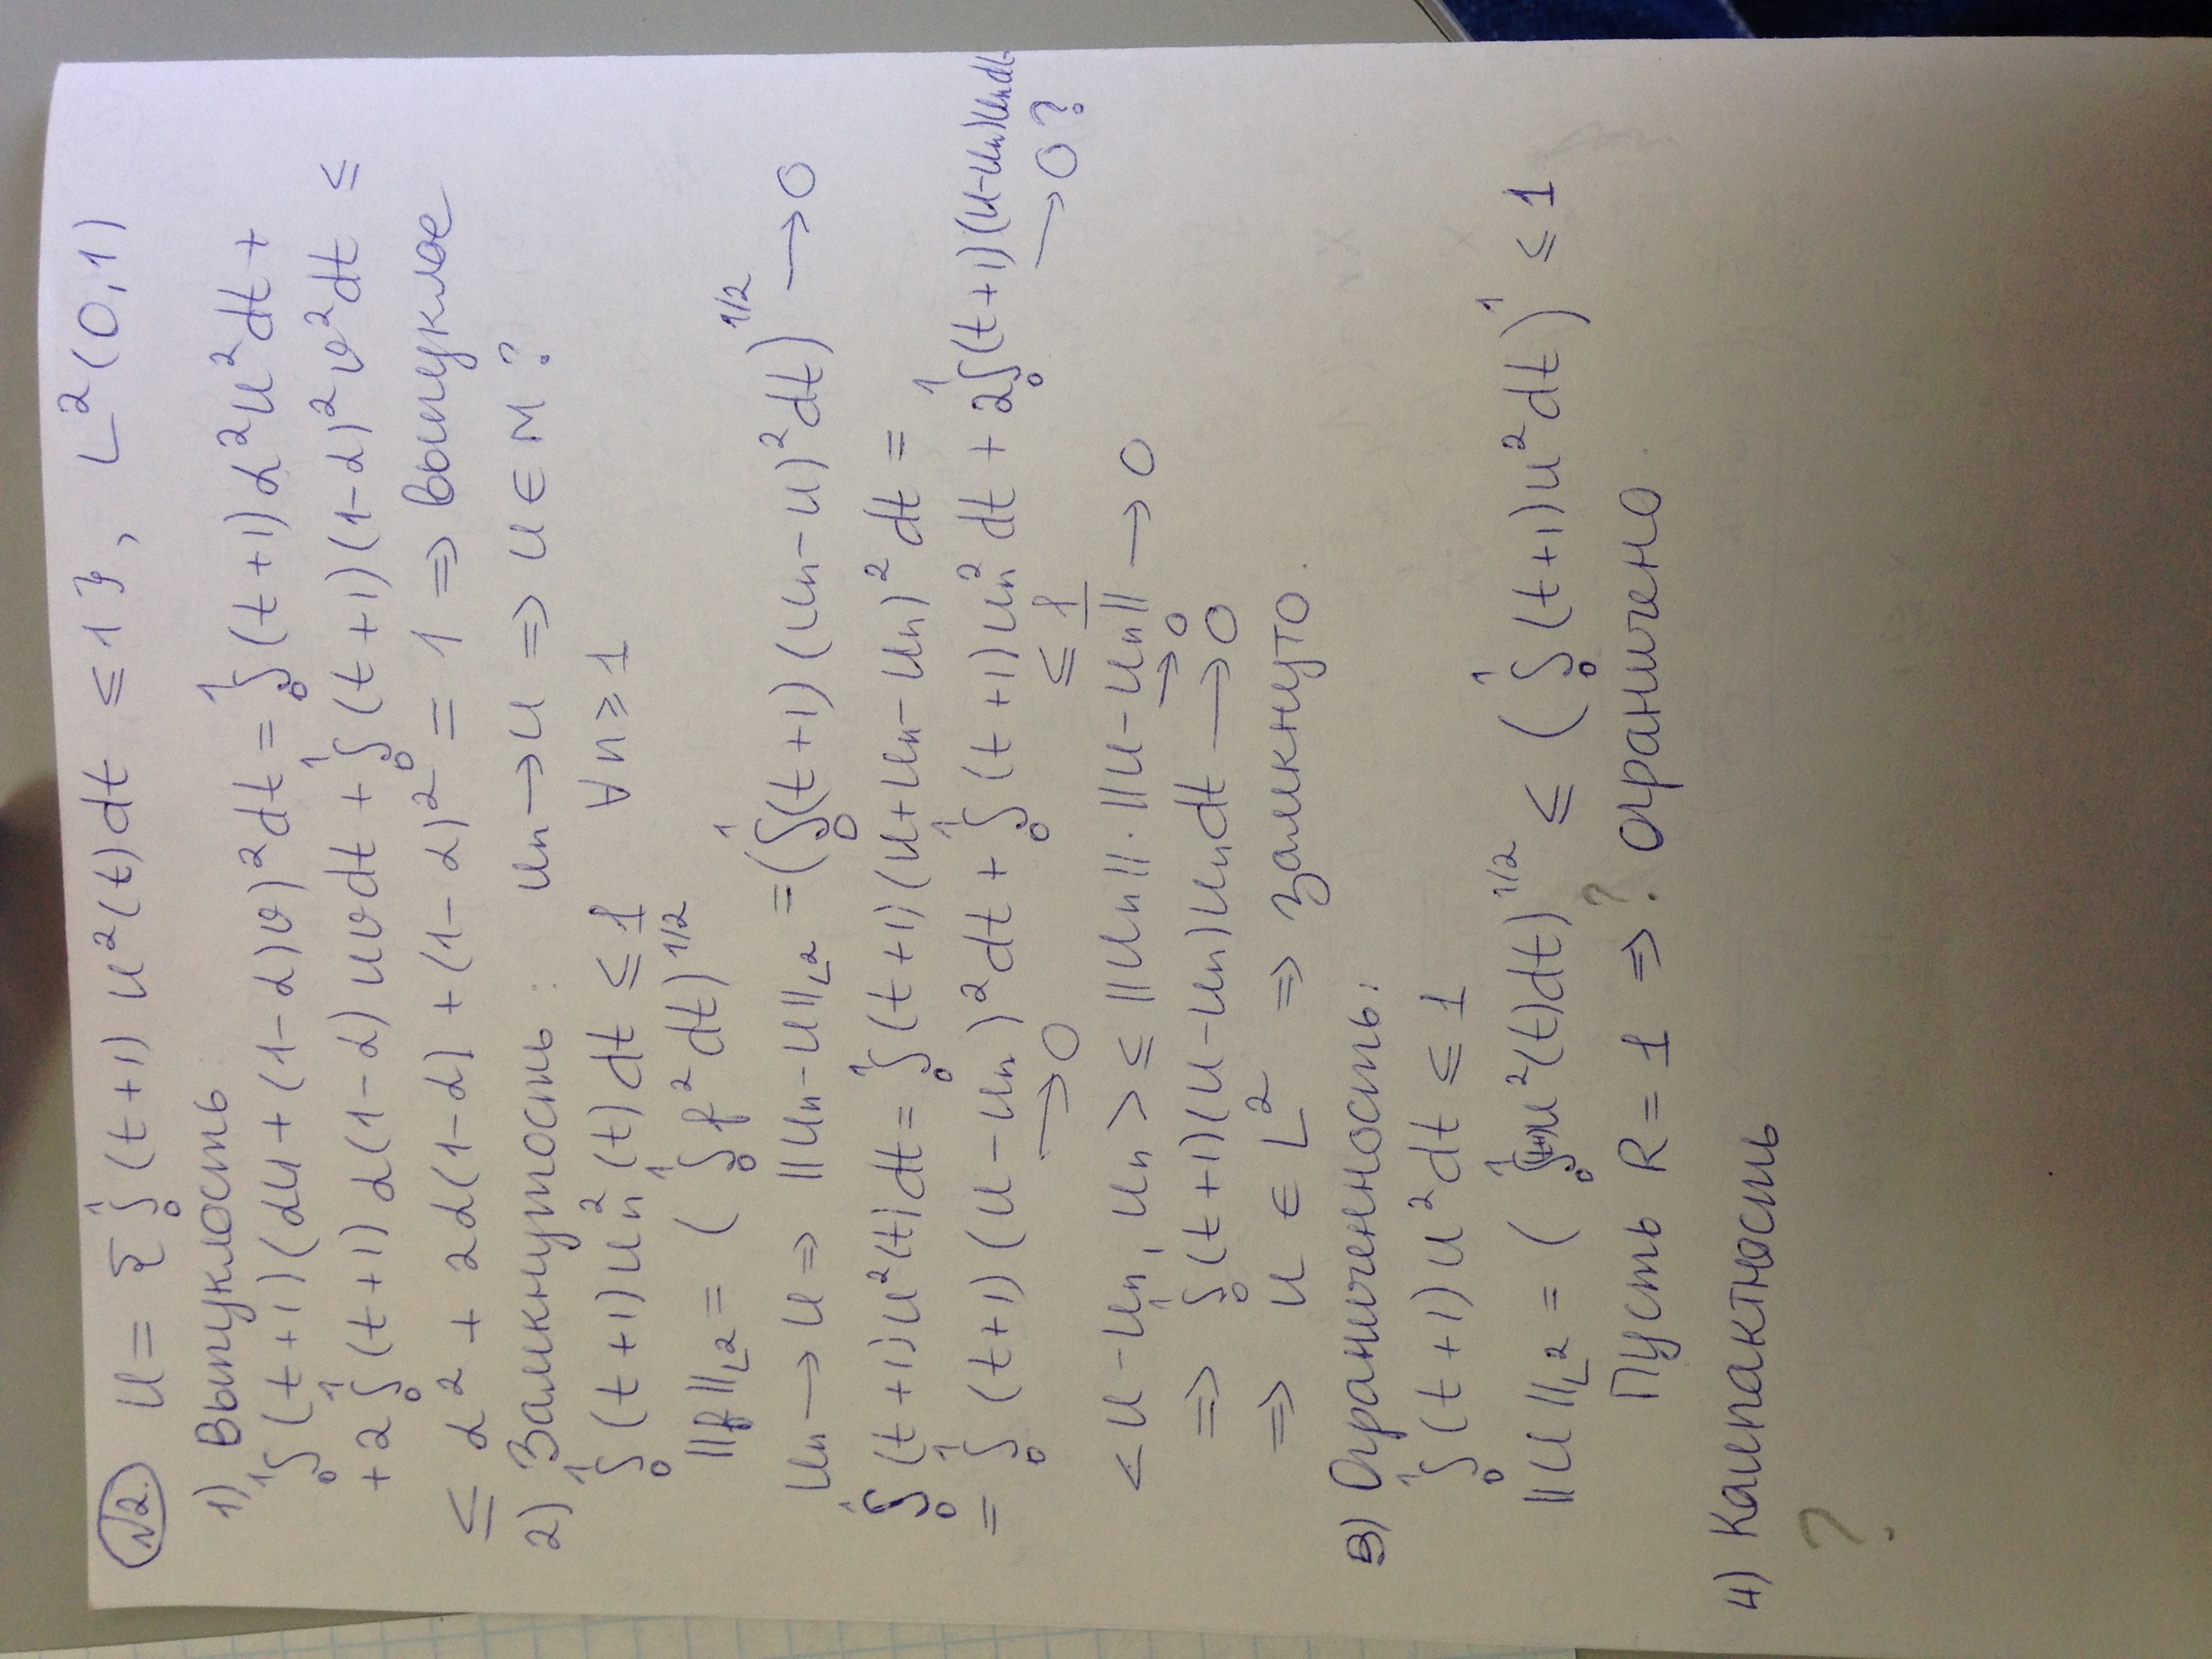 №2. U = { ∫₀¹ (t+1) u²(t) dt ≤ 1 }, L²(0,1)
1) Выпуклость
∫₀¹ (t+1)(αu + (1-α)v)² dt = ∫₀¹ (t+1) α² u² dt +
+ 2 ∫₀¹ (t+1) α(1-α) uv dt + ∫₀¹ (t+1)(1-α)² v² dt ≤
≤ α² + 2α(1-α) + (1-α)² = 1 ⇒ выпуклое
2) Замкнутость: uₙ → u ⇒ u ∈ M?
∫₀¹ (t+1) uₙ²(t) dt ≤ 1 ∀ n ≥ 1
||f||_L² = ( ∫₀¹ f² dt)^1/2
uₙ → u ⇒ ||uₙ - u||_L² = (∫₀¹ (t+1)(uₙ - u)² dt)^1/2 → 0
∫₀¹ (t+1) u²(t) dt = ∫₀¹ (t+1)(u + uₙ - uₙ)² dt =
= ∫₀¹ (t+1)(u - uₙ)² dt + ∫₀¹ (t+1) uₙ² dt + 2∫₀¹ (t+1)(u-uₙ)uₙdt
→ 0 ≤ 1 → 0?
< u - uₙ, uₙ > ≤ ||uₙ|| · ||u - uₙ|| → 0
→ 0
⇒ ∫₀¹ (t+1)(u - uₙ) uₙ dt → 0
⇒ u ∈ L² ⇒ замкнуто.
3) Ограниченность:
∫₀¹ (t+1) u² dt ≤ 1
||u||_L² = ( ∫₀¹ u²(t) dt)^1/2 ≤ ( ∫₀¹ (t+1) u² dt)¹ ≤ 1
?
Пусть R = 1 ⇒ ограничено.
4) Компактность
?